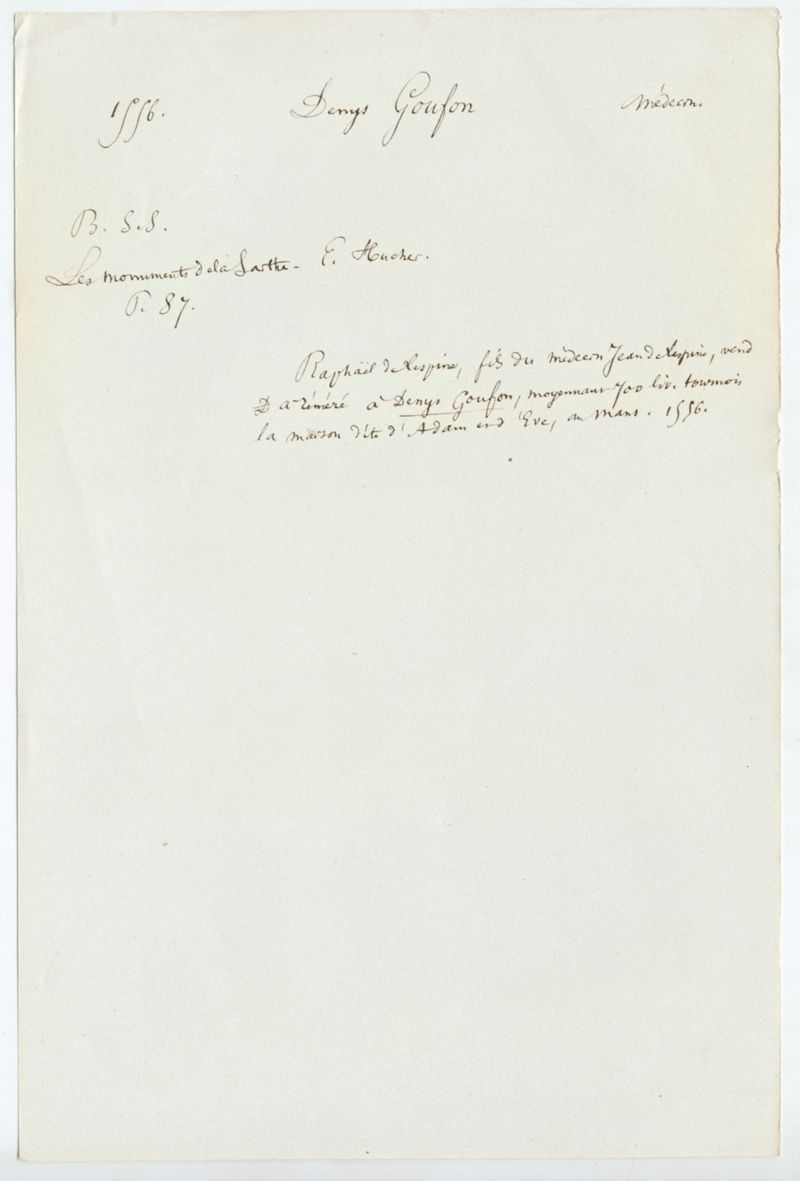 1556. Denys Goufon Médecin.
B. S. S.
Les monuments de la Sarthe. E. Hucher.
P. 87.
Raphaël de Lespine, fils du médecin Jean de Lespine, vend
D à réméré à Denys Goufon, moyennant 700 liv. tournois
la maison dite d'Adam et d'Eve, au Mans. 1556.